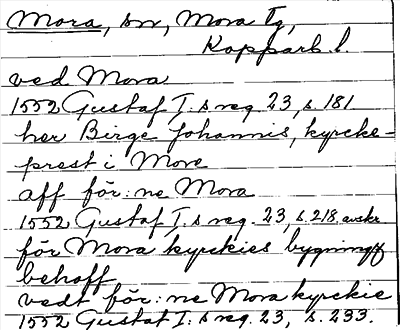 Mora, sn, Mora tg,
Kopparb. l
ved Mora
1552 Gustaf I:s reg. 23, s. 181.
her Birge Johannis, kyrcke-
prest i More
aff för:ne Mora
1552 Gustaf I:s reg. 23, s. 218 avskr
för Mora kyrckies bygningz
behoff
vedt för:ne Mora kyrckie
1552 Gustaf I:s reg. 23, s. 233.